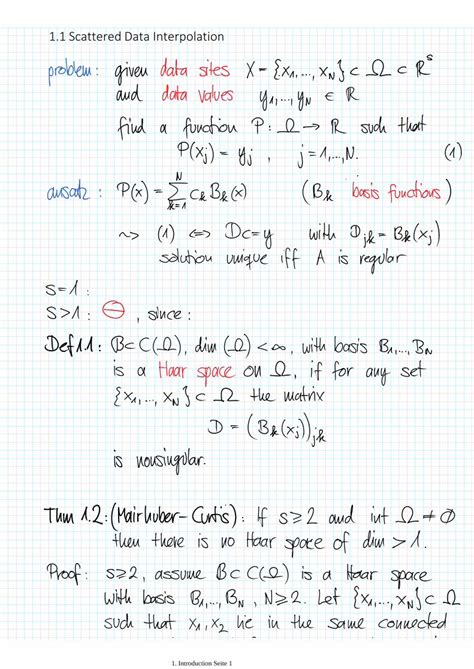 1.1 Scattered Data Interpolation
problem: given data sites X = {x₁,..., x_N} ⊂ Ω ⊂ ℝˢ
and data values y₁,..., y_N ∈ ℝ
find a function P: Ω → ℝ such that
P(x_j) = y_j , j = 1,...,N. (1)
ansatz: P(x) = ∑_{k=1}^{N} c_k B_k(x) (B_k basis functions)
⇝ (1) ⇔ Dc = y with D_{jk} = B_k(x_j)
solution unique iff A is regular
s=1 :
s>1 : ⊖ , since :
Def 1.1: B ⊂ C(Ω), dim (Ω) < ∞, with basis B₁,..., B_N
is a Haar space on Ω, if for any set
{x₁,..., x_N} ⊂ Ω the matrix
D = (B_k(x_j))_{j,k}
is nonsingular.
Thm 1.2: (Mairhuber-Curtis): If s ≥ 2 and int Ω ≠ ∅
then there is no Haar space of dim > 1.
Proof: s ≥ 2, assume B ⊂ C(Ω) is a Haar space
with basis B₁,..., B_N , N ≥ 2. Let {x₁,..., x_N} ⊂ Ω
such that x₁, x₂ lie in the same connected
1. Introduction Seite 1